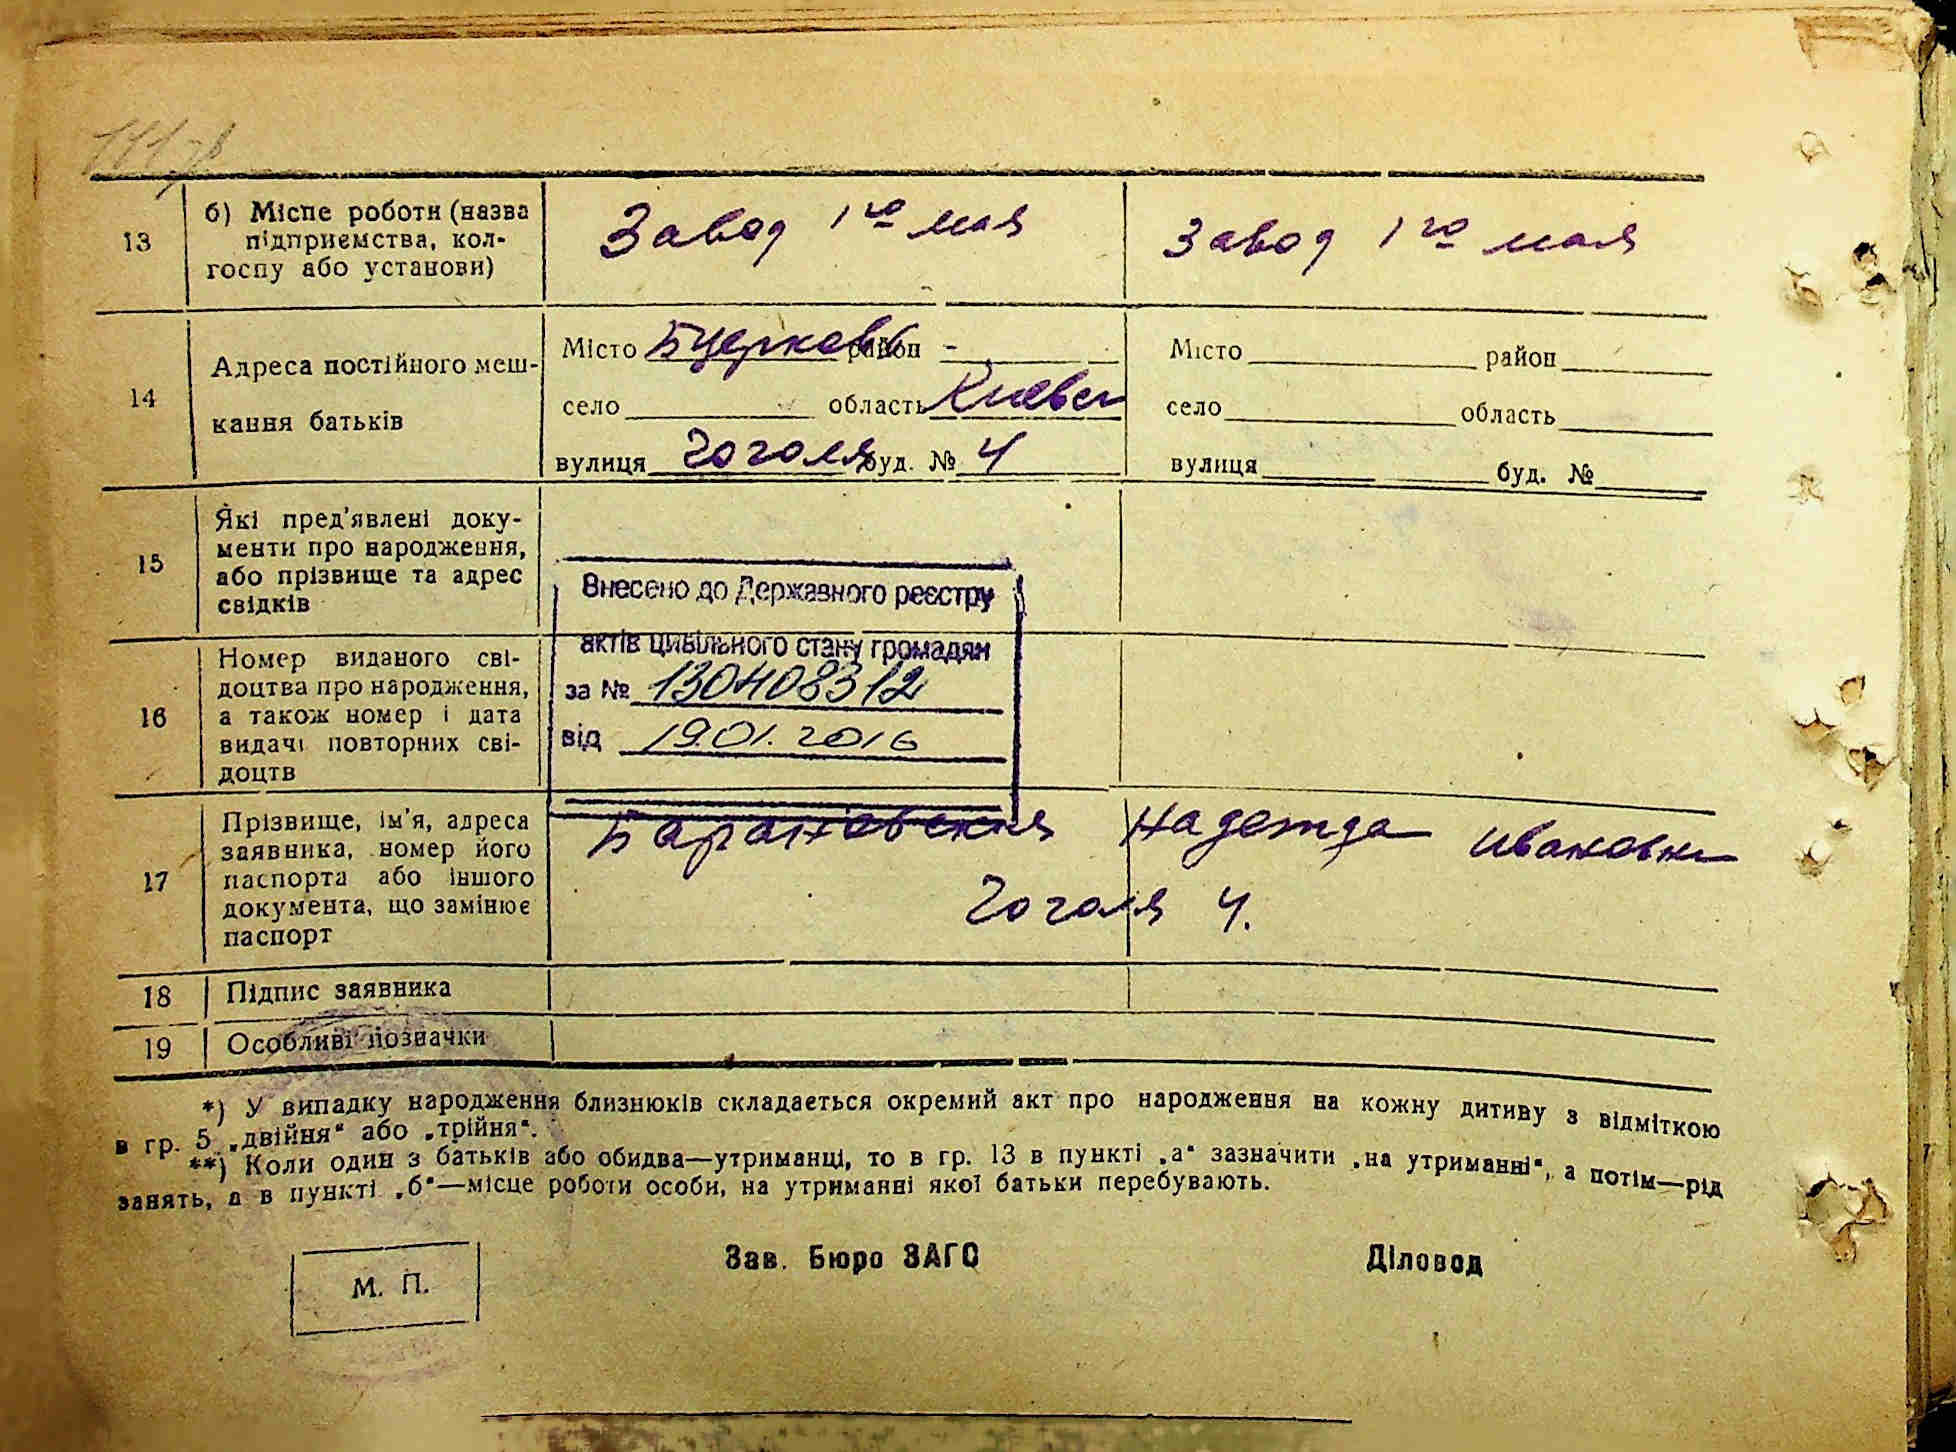 13
б) Місце роботи (назва
підприємства, кол-
госпу або установи)
Завод 1го мая
Завод 1го мая
14
Адреса постійного меш-
кання батьків
Місто Бцерковь район -
село область Киевск
вулиця Гоголя буд. № 4
Місто район
село область
вулиця буд. №
15
Які пред'явлені доку-
менти про народження,
або прізвище та адрес
свідків
Внесено до Державного реєстру
актів цивільного стану громадян
за № 130408312
від 19.01.2016
16
Номер виданого сві-
доцтва про народження,
а також номер і дата
видачі повторних сві-
доцтв
17
Прізвище, ім'я, адреса
заявника, номер його
паспорта або іншого
документа, що замінює
паспорт
Барановская Надежда Ивановна
Гоголя 4.
18
Підпис заявника
19
Особливі позначки
*) У випадку народження близнюків складається окремий акт про народження на кожну дитину з відміткою
в гр. 5 „двійня“ або „трійня“.
**) Коли один з батьків або обидва—утриманці, то в гр. 13 в пункті „а“ зазначити „на утриманні“, а потім—рід
занять, а в пункті „б“—місце роботи особи, на утриманні якої батьки перебувають.
М. П.
Зав. Бюро ЗАГС
Діловод